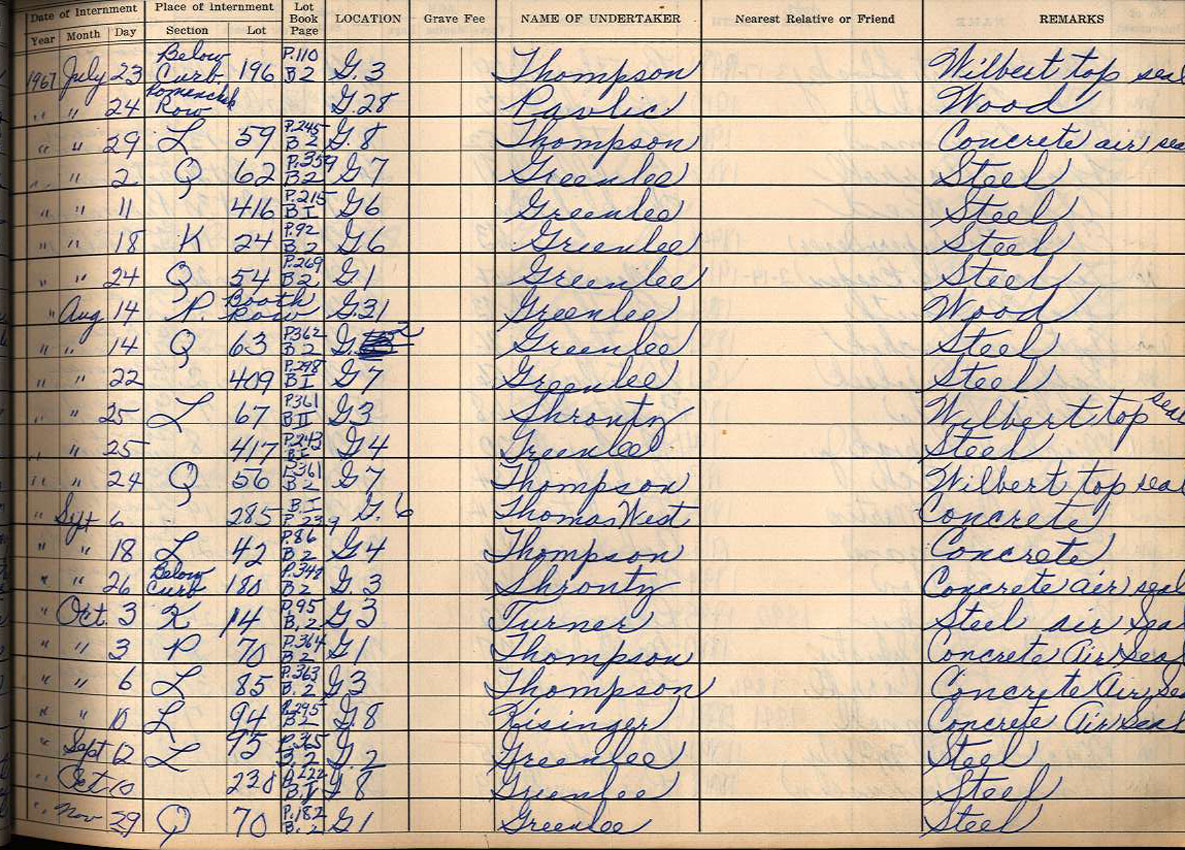 Date of Internment Place of Internment Lot Book Page LOCATION Grave Fee NAME OF UNDERTAKER Nearest Relative or Friend REMARKS
Year Month Day Section Lot
1967 July 23 Below Curb 196 P.110 B2 G.3 Thompson Wilbert top seal
" " 24 Row G.28 Pavlic Wood
" " 29 L 59 P.245 B2 G.8 Thompson Concrete air sea
" " 2 Q 62 P.359 B.2 G7 Greenlee Steel
" " 11 416 P.215 BI G6 Greenlee Steel
" " 18 K 24 P.92 B.2 G6 Greenlee Steel
" " 24 Q 54 P.269 B2 G1 Greenlee Steel
" Aug 14 P. Booth Row G.31 Greenlee Wood
" " 14 Q 63 P362 B2 G. 2 Greenlee Steel
" " 22 409 P.298 BI G7 Greenlee Steel
" " 25 L 67 P361 BII G3 Shrontz Wilbert top seal
" " 25 417 P.243 B.I G4 Greenlee Steel
" " 24 Q 56 P.361 B.2 G7 Thompson Wilbert top seal
" Sept 6 285 B.I P.239 G.6 Thomas West Concrete
" " 18 L 42 P.86 B2 G4 Thompson Concrete
" " 26 Below Curb 180 P.348 B2 G.3 Shrontz Concrete air seal
" Oct 3 K 14 P.95 B.2 G3 Turner Steel air Seal
" " 3 P 70 P.364 B2 G1 Thompson Concrete Air Seal
" " 6 L 85 P.363 B.2 G3 Thompson Concrete Air Se
" " 10 L 94 P.295 B2 G.8 Kisinger Concrete Air seal
" Sept 12 L 75 P.365 B.2 G.2 Greenlee Steel
" Oct 10 238 P.222 B.I G8 Greenlee Steel
" Nov 29 Q 70 P.182 B.2 G1 Greenlee Steel